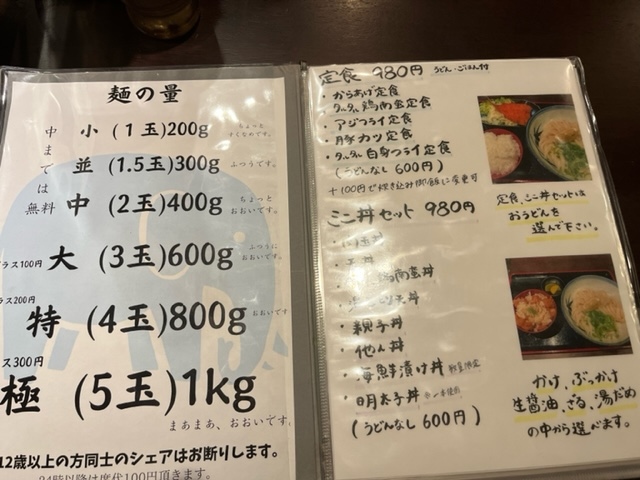 麺の量
中までは無料
小 (1玉)200g ちょっとすくなめです。
並 (1.5玉)300g ふつうです。
中 (2玉)400g ちょっとおおいです。
ラス100円 大 (3玉)600g ふつうにおおいです。
ラス200円
特 (4玉)800g おおいです
ス300円
極 (5玉)1kg
まあまあ、おおいです。
12歳以上の方同士のシェアはお断りします。
24時以降は席代100円頂きます。
定食 980円 うどん・ごはん付
・からあげ定食
タルタル鶏南蛮定食
・アジフライ定食
・豚カツ定食
・タルタル白身フライ定食
(うどんなし 600円)
+100円で炊き込み御飯に変更可
定食、ミニ丼セットは
おうどんを
選んで下さい。
ミニ丼セット 980円
鶏南蛮丼
・親子丼
・他人丼
・海鮮漬け丼 数量限定
・明太子丼
(うどんなし 600円)
かけ、ぶっかけ
生醤油、ざる、湯だめ
の中から選べます。